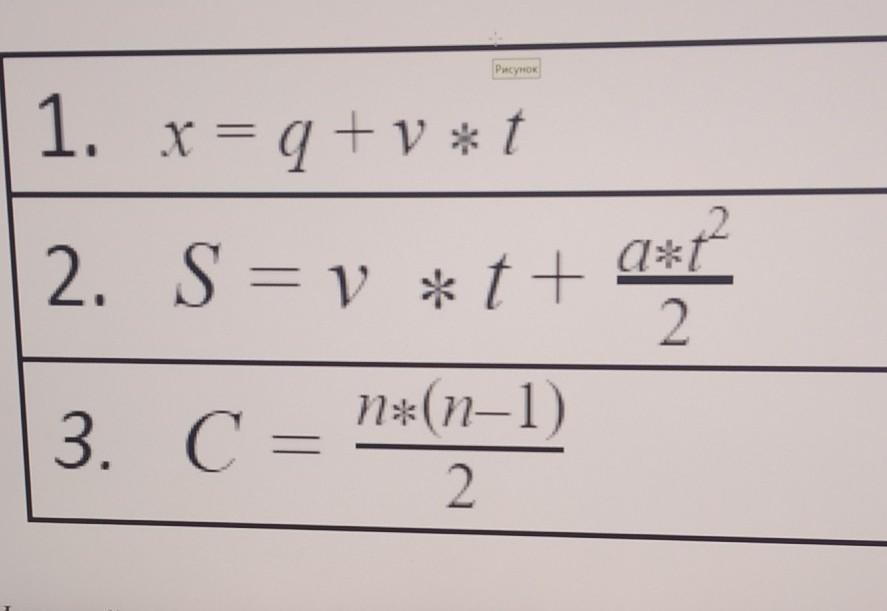 Рисунок
1. x = q + v * t
2. S = v * t + a*t²/2
3. C = n*(n–1)/2